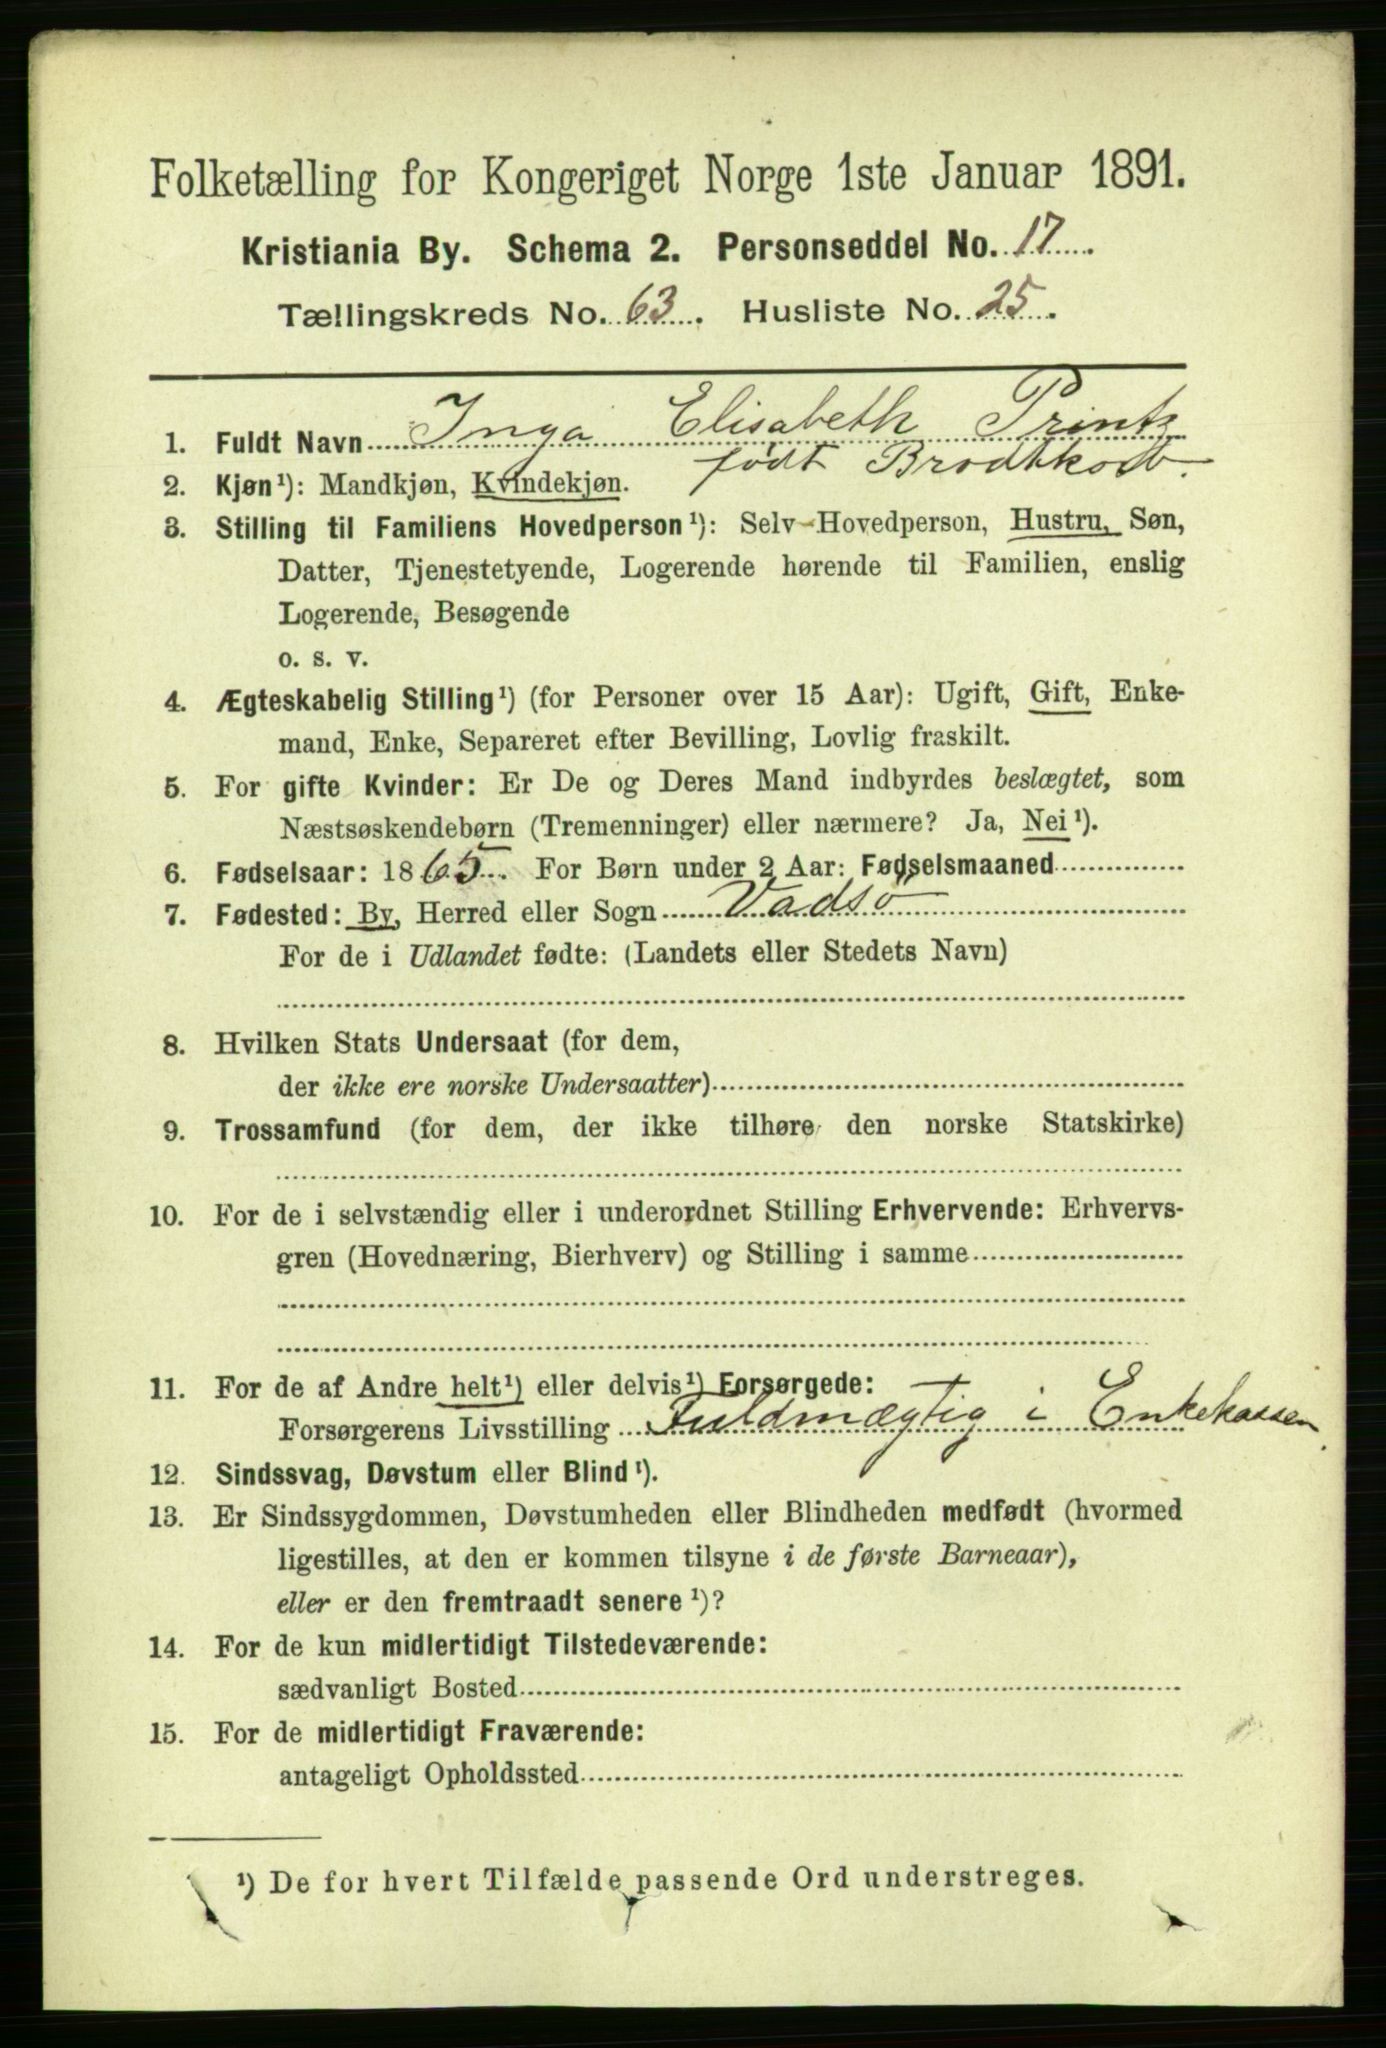 Folketælling for Kongeriget Norge 1ste Januar 1891.
Kristiania By. Schema 2. Personseddel No. 17
Tællingskreds No. 63. Husliste No. 25.
1. Fuldt Navn Inga Elisabeth Printz
født Brodtkorb.
2. Kjøn¹): Mandkjøn, Kvindekjøn.
3. Stilling til Familiens Hovedperson¹): Selv Hovedperson, Hustru, Søn,
Datter, Tjenestetyende, Logerende hørende til Familien, enslig
Logerende, Besøgende
o. s. v.
4. Ægteskabelig Stilling¹) (for Personer over 15 Aar): Ugift, Gift, Enke-
mand, Enke, Separeret efter Bevilling, Lovlig fraskilt.
5. For gifte Kvinder: Er De og Deres Mand indbyrdes beslægtet, som
Næstsøskendebørn (Tremenninger) eller nærmere? Ja, Nei¹).
6. Fødselsaar: 1865. For Børn under 2 Aar: Fødselsmaaned
7. Fødested: By, Herred eller Sogn Vadsö
For de i Udlandet fødte: (Landets eller Stedets Navn)
8. Hvilken Stats Undersaat (for dem,
der ikke ere norske Undersaatter)
9. Trossamfund (for dem, der ikke tilhøre den norske Statskirke)
10. For de i selvstændig eller i underordnet Stilling Erhvervende: Erhvervs-
gren (Hovednæring, Bierhverv) og Stilling i samme
11. For de af Andre helt¹) eller delvis¹) Forsørgede:
Forsørgerens Livsstilling Fuldmægtig i Enkekassen.
12. Sindssvag, Døvstum eller Blind¹).
13. Er Sindssygdommen, Døvstumheden eller Blindheden medfødt (hvormed
ligestilles, at den er kommen tilsyne i de første Barneaar),
eller er den fremtraadt senere¹)?
14. For de kun midlertidigt Tilstedeværende:
sædvanligt Bosted
15. For de midlertidigt Fraværende:
antageligt Opholdssted
¹) De for hvert Tilfælde passende Ord understreges.